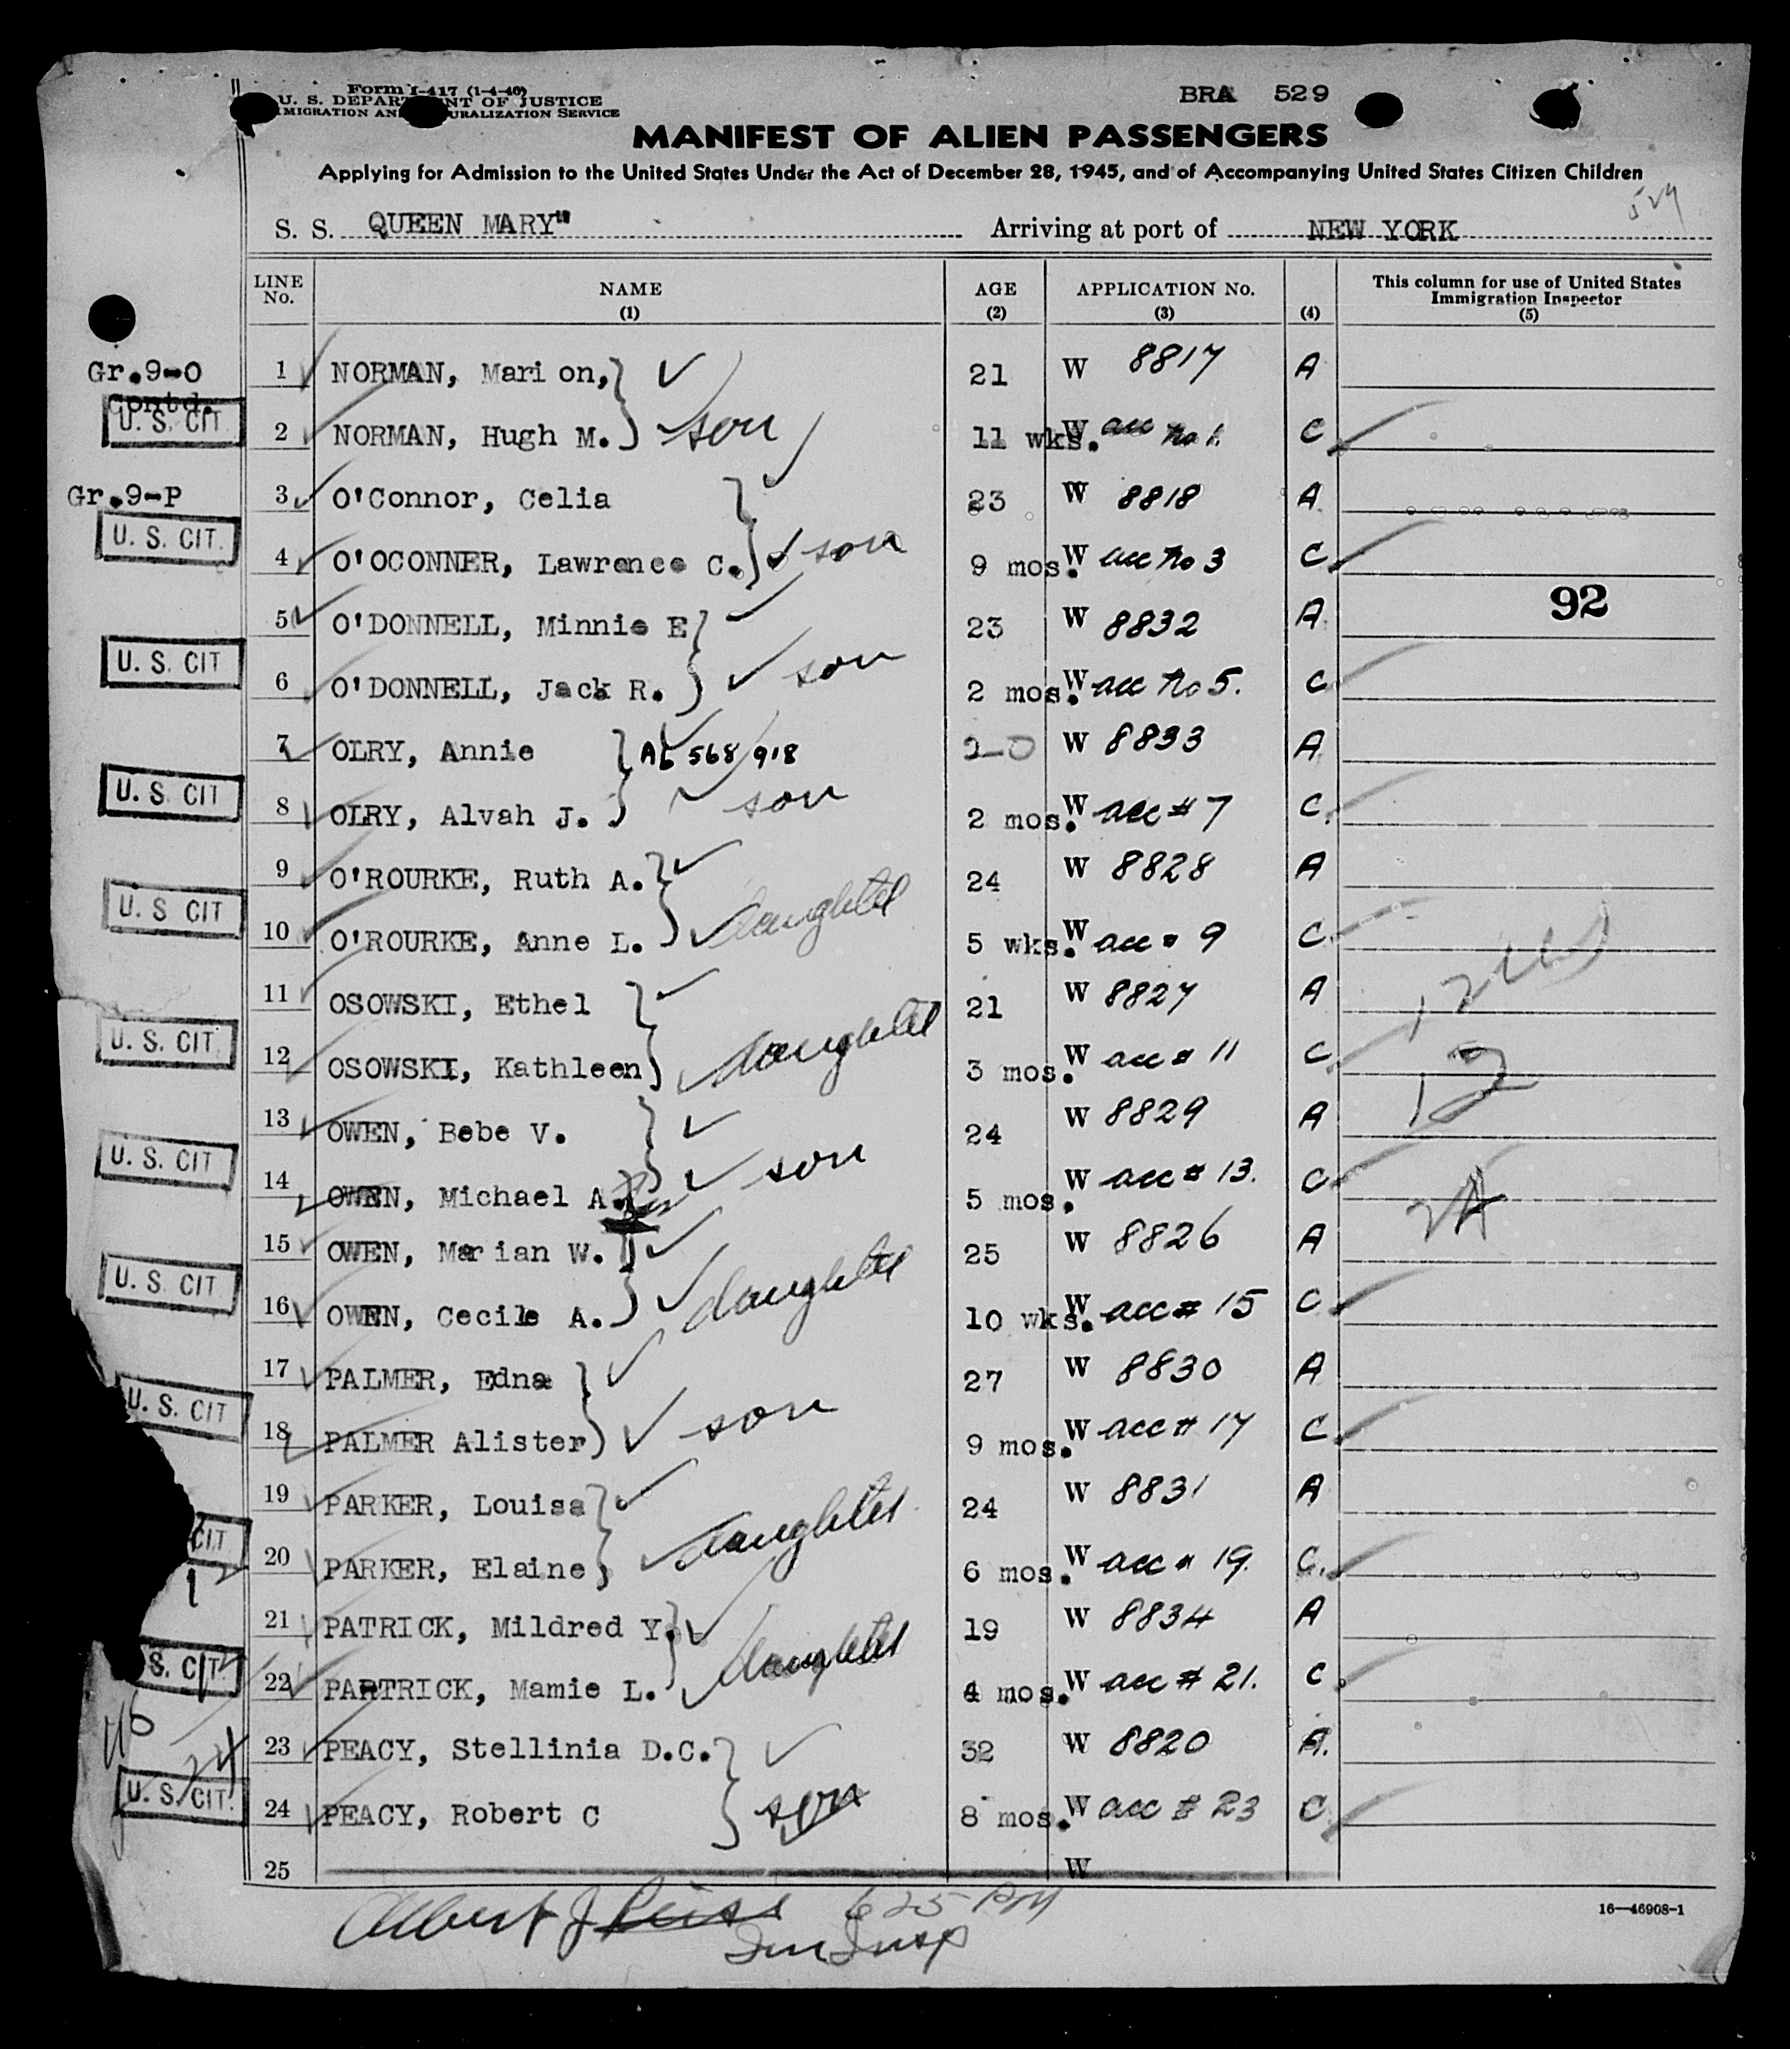 Form I-417 (1-4-46)
U. S. DEPARTMENT OF JUSTICE
IMMIGRATION AND NATURALIZATION SERVICE
BRA 529
MANIFEST OF ALIEN PASSENGERS
Applying for Admission to the United States Under the Act of December 28, 1945, and of Accompanying United States Citizen Children
529
S. S. QUEEN MARY" Arriving at port of NEW YORK
LINE No. NAME (1) AGE (2) APPLICATION No. (3) (4) This column for use of United States Immigration Inspector (5)
Gr.9-O 1 NORMAN, Marion, 21 W 8817 A
Contd.
U. S. CIT 2 NORMAN, Hugh M. son 11 wks. W acc no 1. C
Gr.9-P 3 O'Connor, Celia 23 W 8818 A
U. S. CIT. 4 O'OCONNER, Lawrence C. son 9 mos. W acc no 3 C
92
5 O'DONNELL, Minnie E 23 W 8832 A
U. S. CIT 6 O'DONNELL, Jack R. son 2 mos. W acc no 5. C
7 OLRY, Annie A6 568 918 20 W 8833 A
U. S. CIT 8 OLRY, Alvah J. son 2 mos. W acc # 7 C.
9 O'ROURKE, Ruth A. 24 W 8828 A
U. S CIT 10 O'ROURKE, Anne L. daughter 5 wks. W acc # 9 C.
11 OSOWSKI, Ethel 21 W 8827 A
U. S. CIT. 12 OSOWSKI, Kathleen daughter 3 mos. W acc # 11 C
12
13 OWEN, Bebe V. 24 W 8829 A
U. S. CIT 14 OWEN, Michael A. son 5 mos. W acc # 13. C
24
15 OWEN, Marian W. 25 W 8826 A
U. S. CIT 16 OWEN, Cecile A. daughter 10 wks. W acc # 15 C
17 PALMER, Edna 27 W 8830 A
U. S. CIT 18 PALMER Alister son 9 mos. W acc # 17 C
19 PARKER, Louisa 24 W 8831 A
CIT 20 PARKER, Elaine daughter 6 mos. W acc # 19. C.
21 PATRICK, Mildred Y. 19 W 8834 A
S. CIT. 22 PARTRICK, Mamie L. daughter 4 mos. W acc # 21. C
23 PEACY, Stellinia D.C. 32 W 8820 A.
24
U. S. CIT. 24 PEACY, Robert C son 8 mos. W acc # 23 C
25 W
Albert J Reiss 625 PM
Imm Insp
16—46908-1